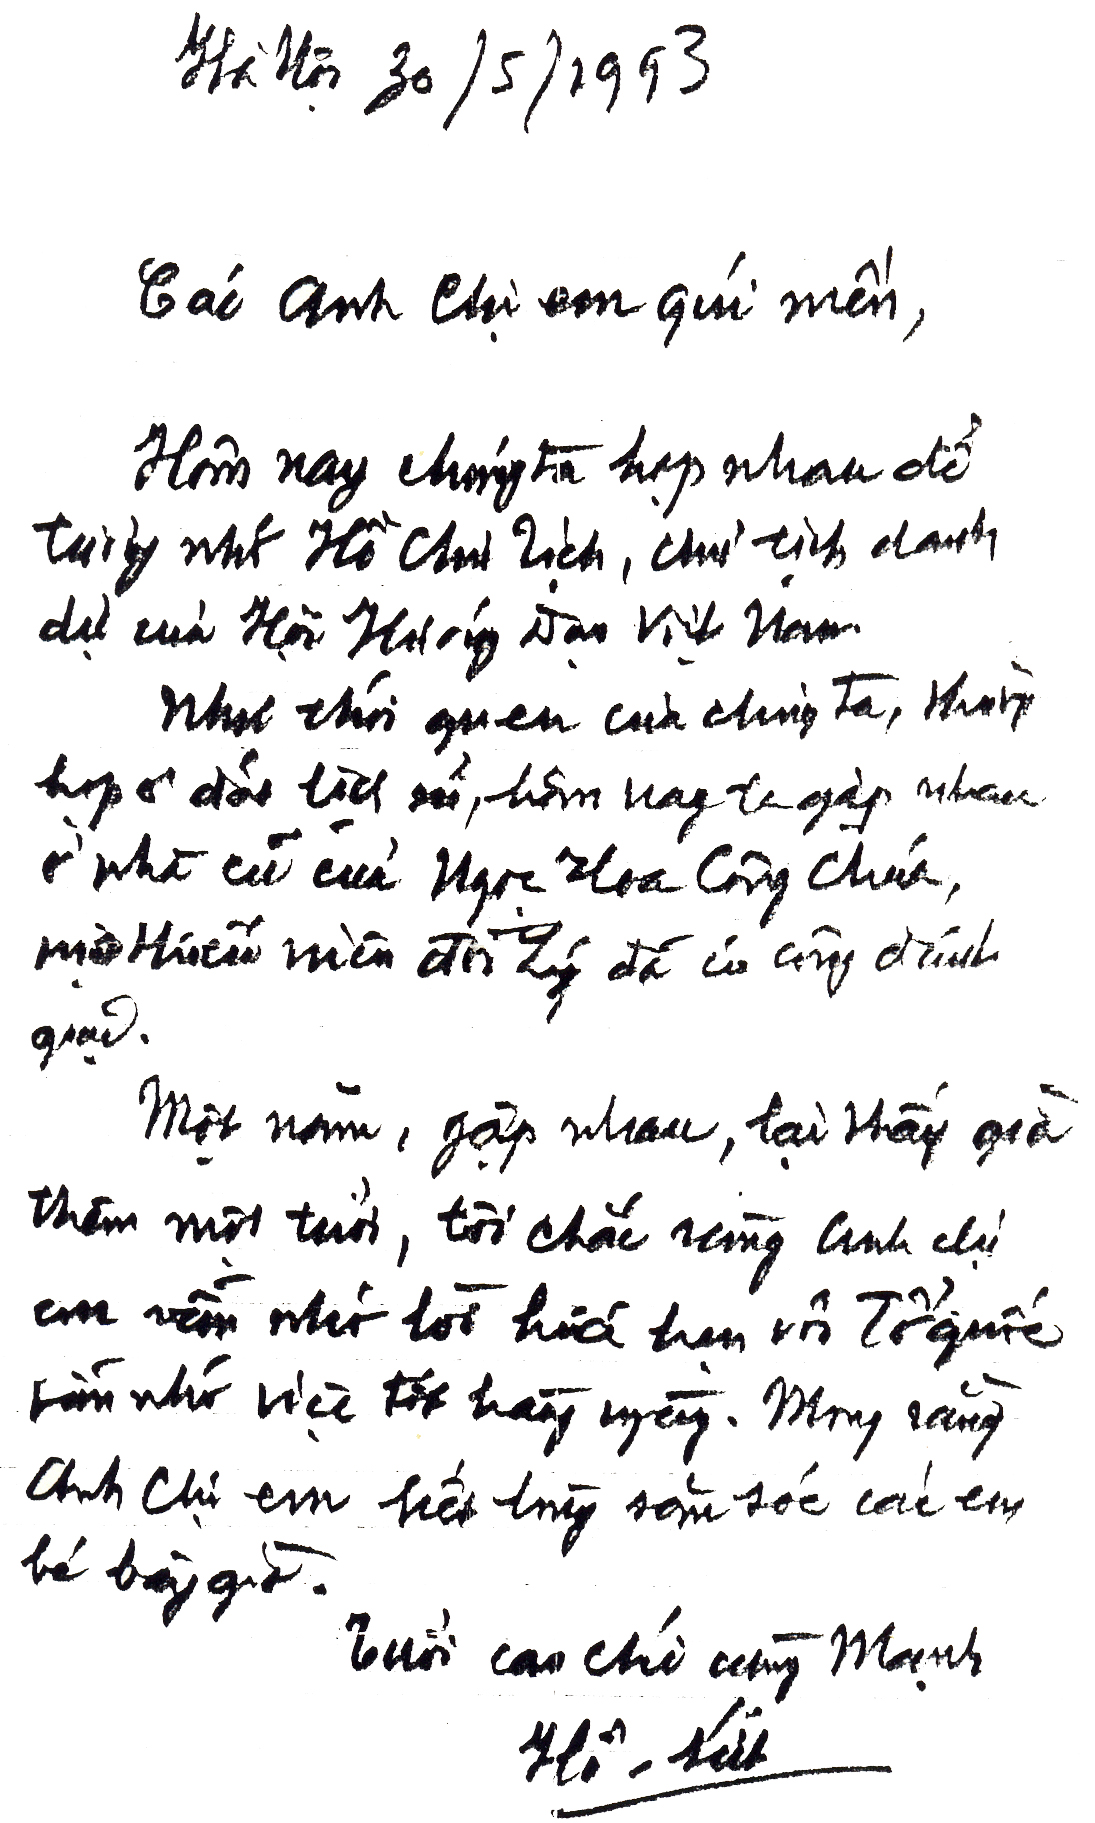 Hà Nội 30/5/1993
Các Anh Chị em quí mến,
Hôm nay chúng ta họp nhau để
tưởng nhớ Hồ Chủ Tịch, chủ tịch danh
dự của Hội Hướng Đạo Việt Nam.
Như thói quen của chúng ta, thường
họp ở đất lịch sử, hôm nay ta gặp nhau
ở nhà cũ của Ngọc Hoa Công Chúa,
một thiếu niên đời Lý đã có công đánh
giặc.
Một năm, gặp nhau, lại thấy già
thêm một tuổi, tôi chắc rằng Anh chị
em vẫn nhớ lời hứa hẹn với Tổ quốc
vẫn nhớ việc tốt hàng ngày. Mong rằng
Anh Chị em hết lòng săn sóc các em
bé bây giờ.
Tuổi cao chí càng Mạnh
Hồ -